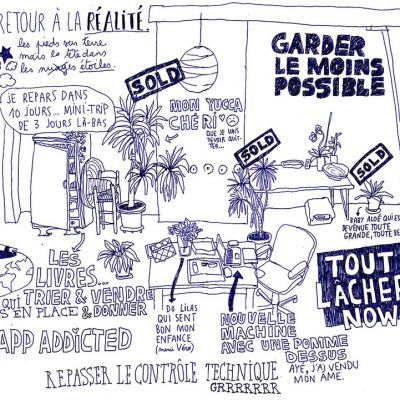 RETOUR À LA RÉALITÉ.
les pieds sur terre
mais la tête dans
les nuages étoiles.
JE REPARS DANS
10 JOURS... MINI-TRIP
DE 3 JOURS LÀ-BAS
SOLD
MON YUCCA
CHÉRI
QUE JE VAIS
DEVOIR QUIT-
TER...
GARDER
LE MOINS
POSSIBLE
SOLD
SOLD
BABY ALOÉ QUI EST
DEVENUE TOUTE
GRANDE, TOUTE BE
LES
LIVRES...
QUI TRIER & VENDRE
S EN PLACE & DONNER
APP ADDICTED
DU LILAS
QUI SENT
BON MON
ENFANCE
(merci Véro)
NOUVELLE
MACHINE
AVEC UNE POMME
DESSUS
AYÉ, J'AI VENDU
MON ÂME.
TOUT
LÂCHER
NOW
REPASSER LE CONTRÔLE TECHNIQUE
GRRRRRRR